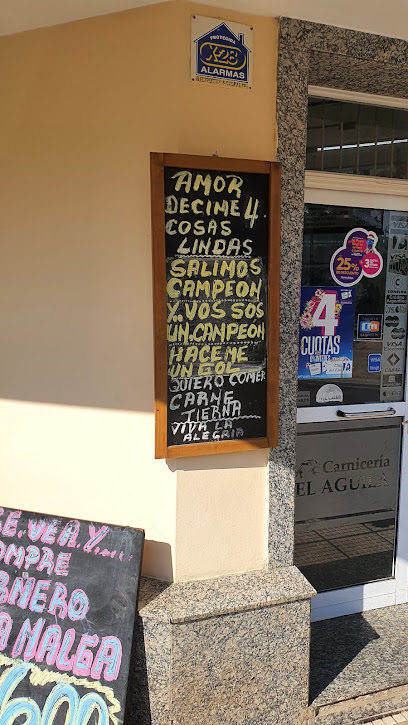 PROTEGIDA
X-28
ALARMAS
AMOR
DECIME 4.
COSAS
LINDAS
SALIMOS
CAMPEON
X. VOS SOS
UN. CANPEON
HACEME
UN GOL
QUIERO COMER
CARNE
TIERNA
VIVA LA
ALEGRIA
25%
3
4
CUOTAS
VISA
VISA
Carnicería
EL AGUILA
SE. VEA. Y.....
OMPRE
RÑERO
A NALGA
600